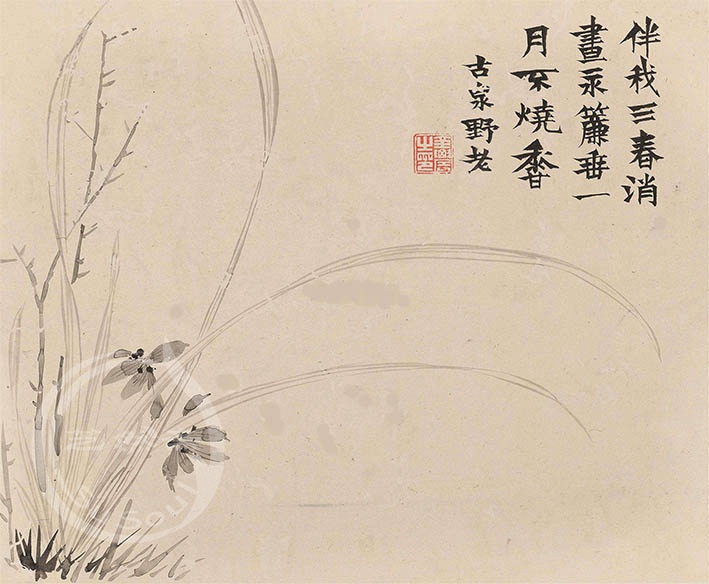 伴我三春消
晝永簾垂一
月不燒香
古泉野老
Soul